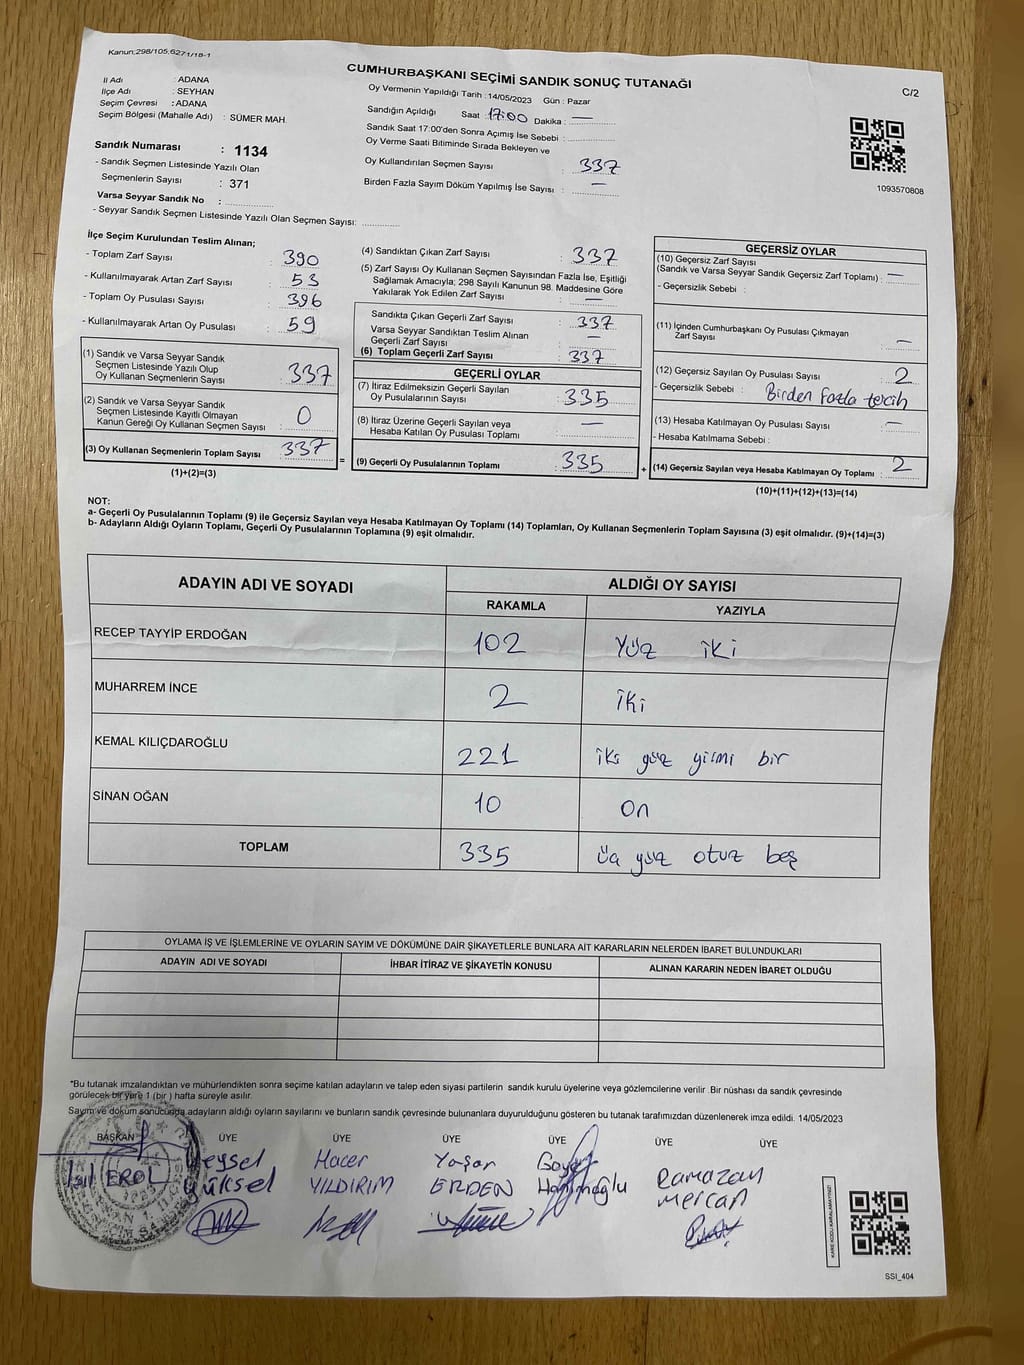 Kanun:298/105,6271/18-1
CUMHURBAŞKANI SEÇİMİ SANDIK SONUÇ TUTANAĞI
C/2
İl Adı : ADANA
İlçe Adı : SEYHAN
Seçim Çevresi : ADANA
Seçim Bölgesi (Mahalle Adı) : SÜMER MAH.
Oy Vermenin Yapıldığı Tarih : 14/05/2023 Gün : Pazar
Sandığın Açıldığı Saat :17:00 Dakika : —
Sandık Saat 17:00'den Sonra Açımış İse Sebebi :
Oy Verme Saati Bitiminde Sırada Bekleyen ve
Oy Kullandırılan Seçmen Sayısı : 337
Birden Fazla Sayım Döküm Yapılmış İse Sayısı : —
1093570808
Sandık Numarası : 1134
- Sandık Seçmen Listesinde Yazılı Olan
Seçmenlerin Sayısı : 371
Varsa Seyyar Sandık No :
- Seyyar Sandık Seçmen Listesinde Yazılı Olan Seçmen Sayısı:
İlçe Seçim Kurulundan Teslim Alınan;
- Toplam Zarf Sayısı : 390
- Kullanılmayarak Artan Zarf Sayısı : 53
- Toplam Oy Pusulası Sayısı : 396
- Kullanılmayarak Artan Oy Pusulası : 59
(1) Sandık ve Varsa Seyyar Sandık
Seçmen Listesinde Yazılı Olup
Oy Kullanan Seçmenlerin Sayısı : 337
(2) Sandık ve Varsa Seyyar Sandık
Seçmen Listesinde Kayıtlı Olmayan
Kanun Gereği Oy Kullanan Seçmen Sayısı : 0
(3) Oy Kullanan Seçmenlerin Toplam Sayısı : 337
(1)+(2)=(3)
=
(4) Sandıktan Çıkan Zarf Sayısı : 337
(5) Zarf Sayısı Oy Kullanan Seçmen Sayısından Fazla İse, Eşitliği
Sağlamak Amacıyla; 298 Sayılı Kanunun 98. Maddesine Göre
Yakılarak Yok Edilen Zarf Sayısı : —
Sandıkta Çıkan Geçerli Zarf Sayısı : 337
Varsa Seyyar Sandıktan Teslim Alınan
Geçerli Zarf Sayısı : —
(6) Toplam Geçerli Zarf Sayısı : 337
GEÇERLİ OYLAR
(7) İtiraz Edilmeksizin Geçerli Sayılan
Oy Pusulalarının Sayısı : 335
(8) İtiraz Üzerine Geçerli Sayılan veya
Hesaba Katılan Oy Pusulası Toplamı : —
(9) Geçerli Oy Pusulalarının Toplamı : 335
+
GEÇERSİZ OYLAR
(10) Geçersiz Zarf Sayısı
(Sandık ve Varsa Seyyar Sandık Geçersiz Zarf Toplamı) : —
- Geçersizlik Sebebi :
(11) İçinden Cumhurbaşkanı Oy Pusulası Çıkmayan
Zarf Sayısı : —
(12) Geçersiz Sayılan Oy Pusulası Sayısı : 2
- Geçersizlik Sebebi : Birden fazla tercih
(13) Hesaba Katılmayan Oy Pusulası Sayısı : —
- Hesaba Katılmama Sebebi :
(14) Geçersiz Sayılan veya Hesaba Katılmayan Oy Toplamı : 2
(10)+(11)+(12)+(13)=(14)
NOT:
a- Geçerli Oy Pusulalarının Toplamı (9) ile Geçersiz Sayılan veya Hesaba Katılmayan Oy Toplamı (14) Toplamları, Oy Kullanan Seçmenlerin Toplam Sayısına (3) eşit olmalıdır. (9)+(14)=(3)
b- Adayların Aldığı Oyların Toplamı, Geçerli Oy Pusulalarının Toplamına (9) eşit olmalıdır.
ADAYIN ADI VE SOYADI ALDIĞI OY SAYISI
RAKAMLA YAZIYLA
RECEP TAYYİP ERDOĞAN 102 Yüz iki
MUHARREM İNCE 2 iki
KEMAL KILIÇDAROĞLU 221 iki yüz yirmi bir
SİNAN OĞAN 10 on
TOPLAM 335 üç yüz otuz beş
OYLAMA İŞ VE İŞLEMLERİNE VE OYLARIN SAYIM VE DÖKÜMÜNE DAİR ŞİKAYETLERLE BUNLARA AİT KARARLARIN NELERDEN İBARET BULUNDUKLARI
ADAYIN ADI VE SOYADI İHBAR İTİRAZ VE ŞİKAYETİN KONUSU ALINAN KARARIN NEDEN İBARET OLDUĞU
*Bu tutanak imzalandıktan ve mühürlendikten sonra seçime katılan adayların ve talep eden siyasi partilerin sandık kurulu üyelerine veya gözlemcilerine verilir .Bir nüshası da sandık çevresinde
görülecek bir yere 1 (bir ) hafta süreyle asılır.
Sayım ve döküm sonucunda adayların aldığı oyların sayılarını ve bunların sandık çevresinde bulunanlara duyurulduğunu gösteren bu tutanak tarafımızdan düzenlenerek imza edildi. 14/05/2023
BAŞKAN ÜYE ÜYE ÜYE ÜYE ÜYE ÜYE
Işıl EROL
Veysel Yüksel
Hacer YILDIRIM
Yaşar ERDEN
Ramazan Mercan
KARE KODU KARALAMAYINIZ!
SSI_404